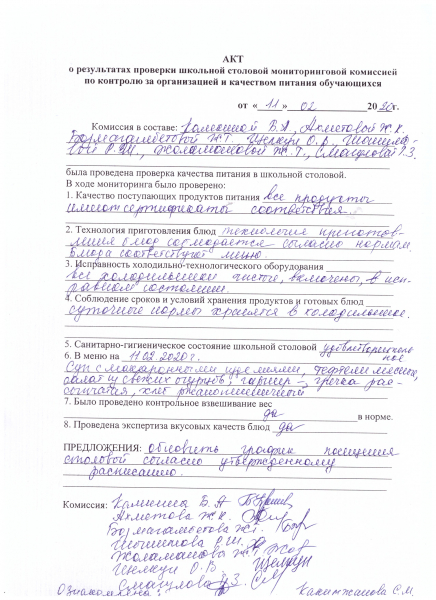 АКТ
о результатах проверки школьной столовой мониторинговой комиссией
по контролю за организацией и качеством питания обучающихся
от «11» 02 2020г.
Комиссия в составе: Каминой В.А, Ахметовой Ж.К.
Бормагамбетовой Ж.Т. Щелкун О.В.,
Р.Ш., Жоламановой Ж.Т., Смагулова Р.З.
была проведена проверка качества питания в школьной столовой.
В ходе мониторинга было проверено:
1. Качество поступающих продуктов питания все продукты
имеют сертификаты соответствия.
2. Технология приготовления блюд технология приготов-
ления блюд соблюдается согласно нормам
Блюда соответствуют меню.
3. Исправность холодильно-технологического оборудования
все холодильники чистые, включены, в исп-
равном состоянии.
4. Соблюдение сроков и условий хранения продуктов и готовых блюд
суточные нормы хранятся в холодильнике.
5. Санитарно-гигиеническое состояние школьной столовой удовлетворитель
ное
6. В меню на 11.02.2020г.
Суп с макаронными изделиями, тефтели мясные,
салат из свежих огурцов, гарнир – гречка рас-
сыпчатая, хлеб ржано-пшеничный
7. Было проведено контрольное взвешивание вес
да в норме.
8. Проведена экспертиза вкусовых качеств блюд да
ПРЕДЛОЖЕНИЯ: обновить график посещения
столовой согласно утвержденному
расписанию.
Комиссия: Камина В.А
Ахметова Ж.К.
Бормагамбетова Ж.Т.
Р.Ш.
Жоламанова Ж.Т.
Щелкун О.В
Смагулова Р.З.
Ознакомлена: С.М.